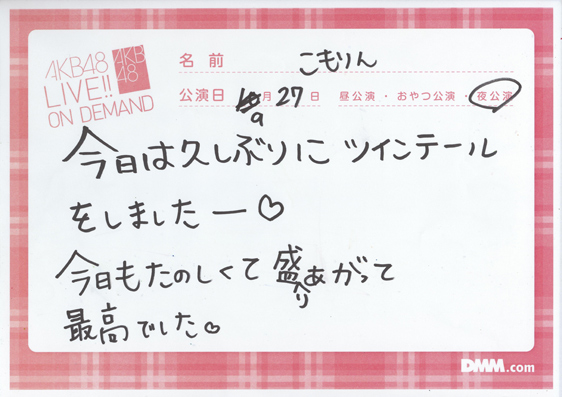 AKB48
LIVE!!
ON DEMAND
AKB
48
名前 こもりん
公演日 9月27日 昼公演・おやつ公演・夜公演
今日は久しぶりに ツインテール
をしましたー♡
今日もたのしくて盛りあがって
最高でした♡
DMM.com